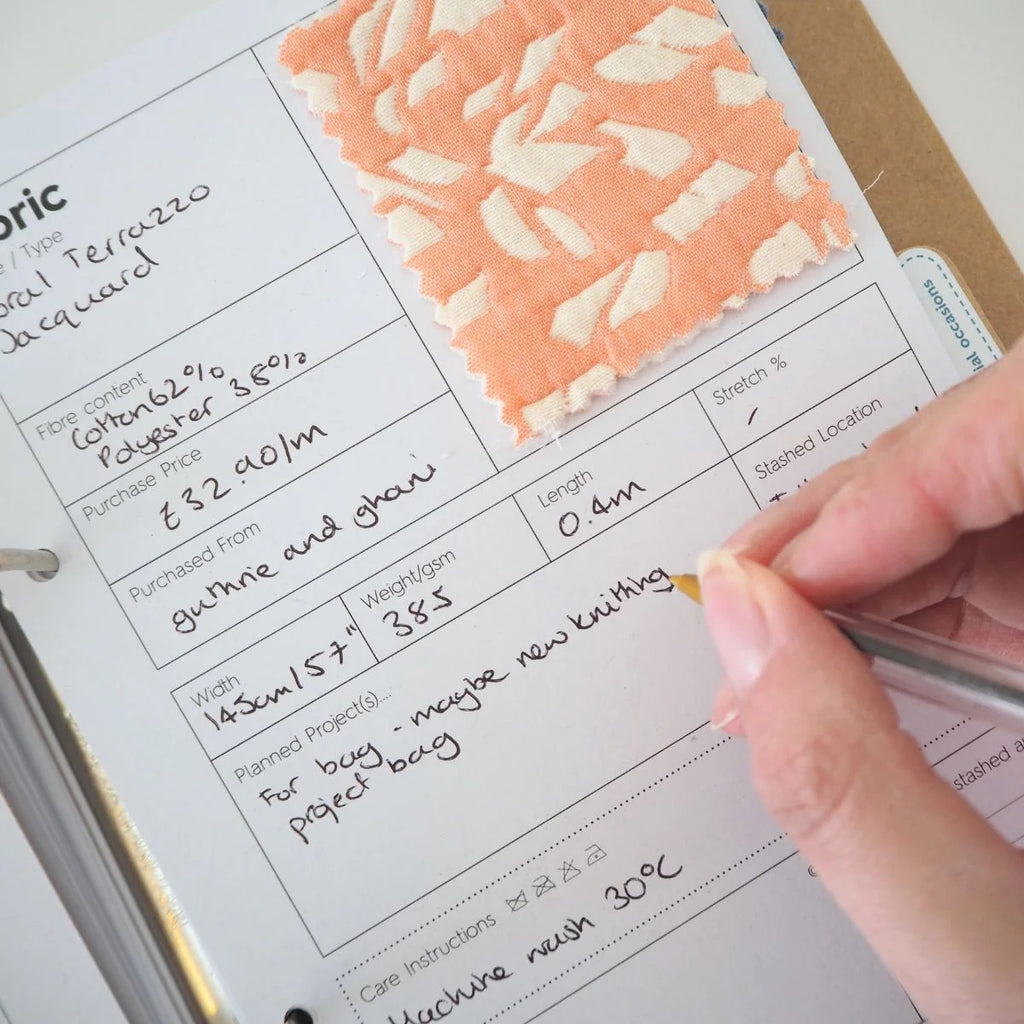 bric
e / Type
oral Terrazzo
Jacquard
Fibre content
Cotton 62%
Polyester 38%
Purchase Price
£32.90/m
Purchased From
guthrie and ghani
Stretch %
/
Length
0.4m
Stashed Location
Width
145cm/57"
Weight/gsm
385
Planned Project(s)....
For bag - maybe new knitting
project bag
stashed a
Care Instructions
Machine wash 30°C
ial occasions